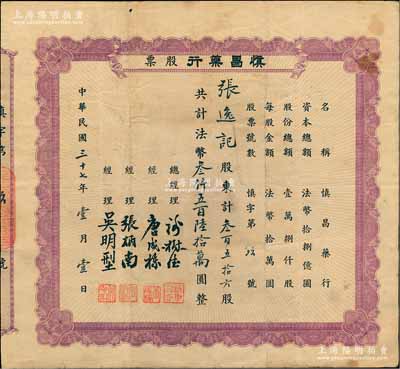 慎昌藥行股票
名稱 慎昌藥行
資本總額 法幣拾捌億圓
股份總額 壹萬捌仟股
每股金額 法幣拾萬圓
股票號數 慎字第 號
張逸記 股東計叁百五拾六股
共計法幣叁仟五百陸拾萬圓整
總經理
經理 唐成樑
經理 張炳南
經理 吳明型
中華民國三十七年壹月壹日
慎字第 號
上海陽明拍賣